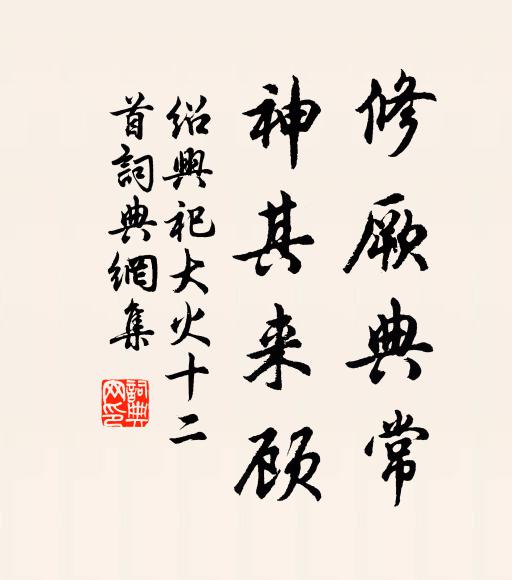 修厥典常
神其来顾
绍興祀大火十二
首詞典網集
詞典网印